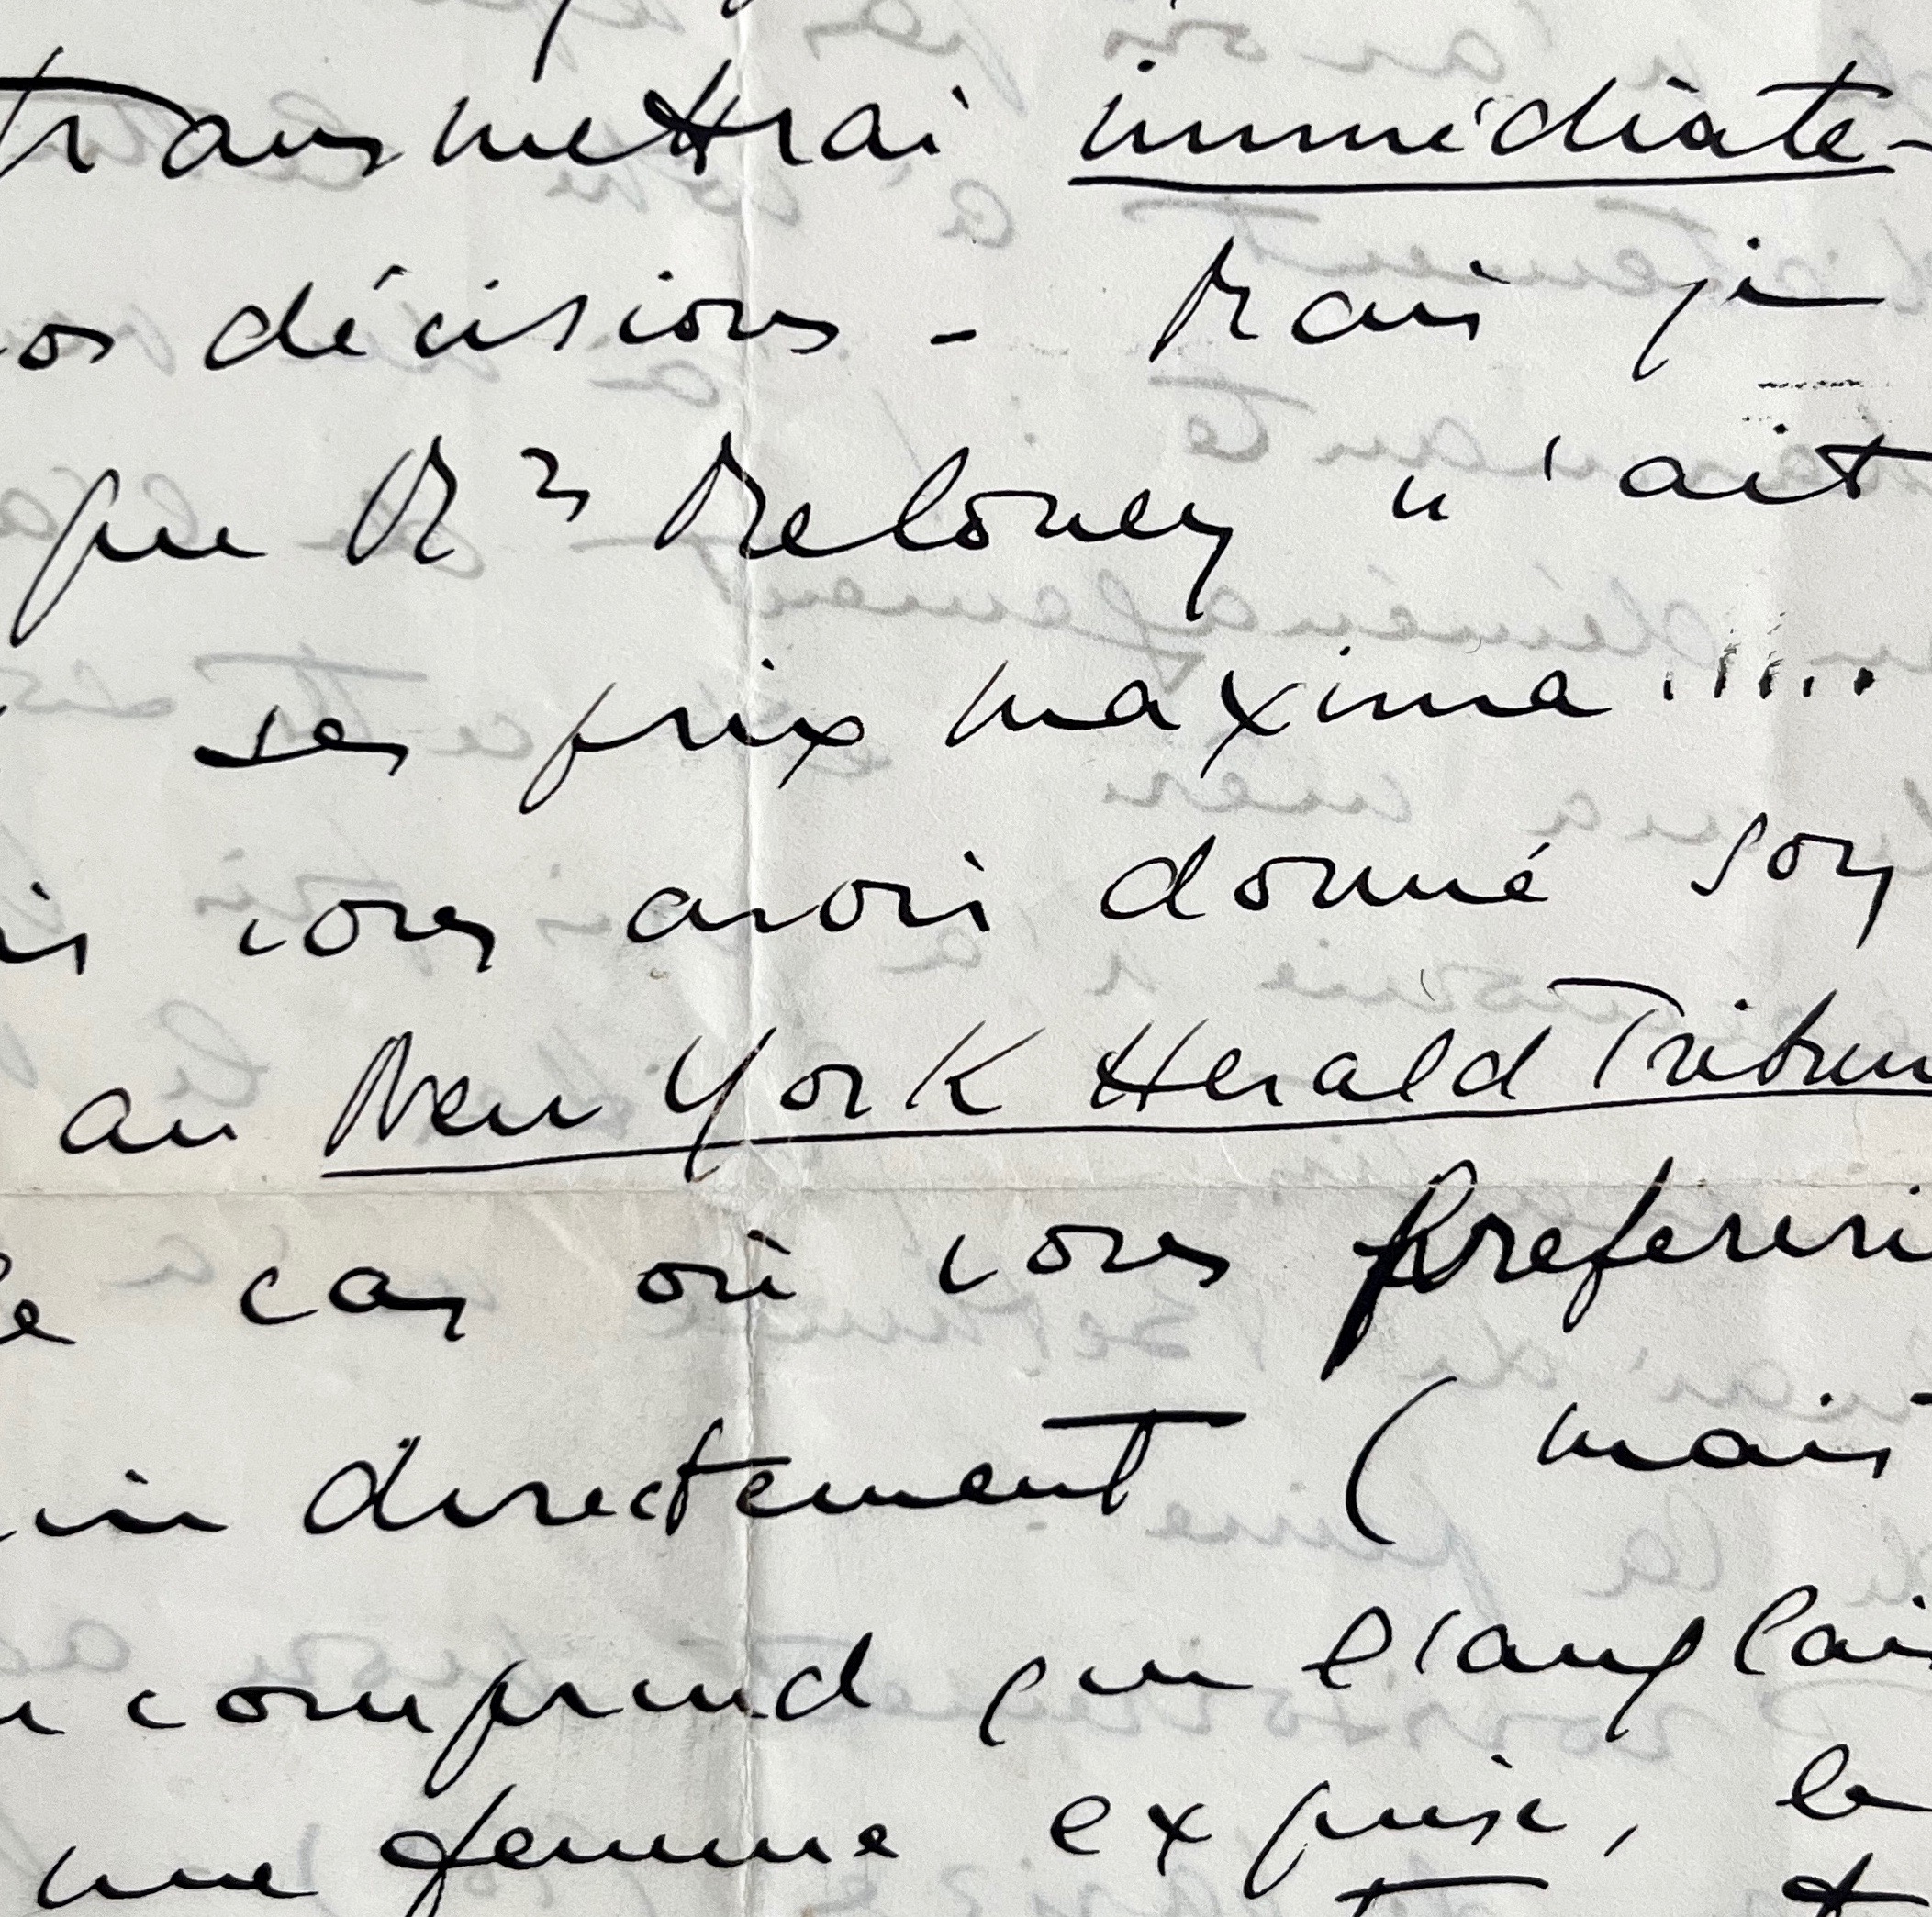 transmettrai immédiate-
os décisions - Mais je
que Mrs Meloney n'ait
ses prix maxima .!!!..
is vous avoir donné son
au New York Herald Tribun
le cas où vous prefereri
directement ( mais
comprend que l'anglai
une femme exquise, le